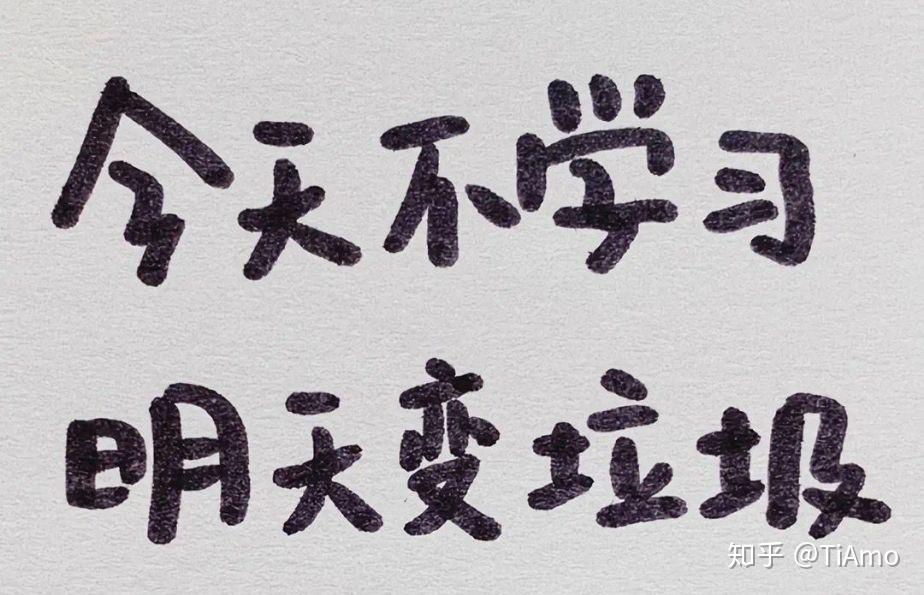 今天不学习
明天变垃圾
知乎 @TiAmo